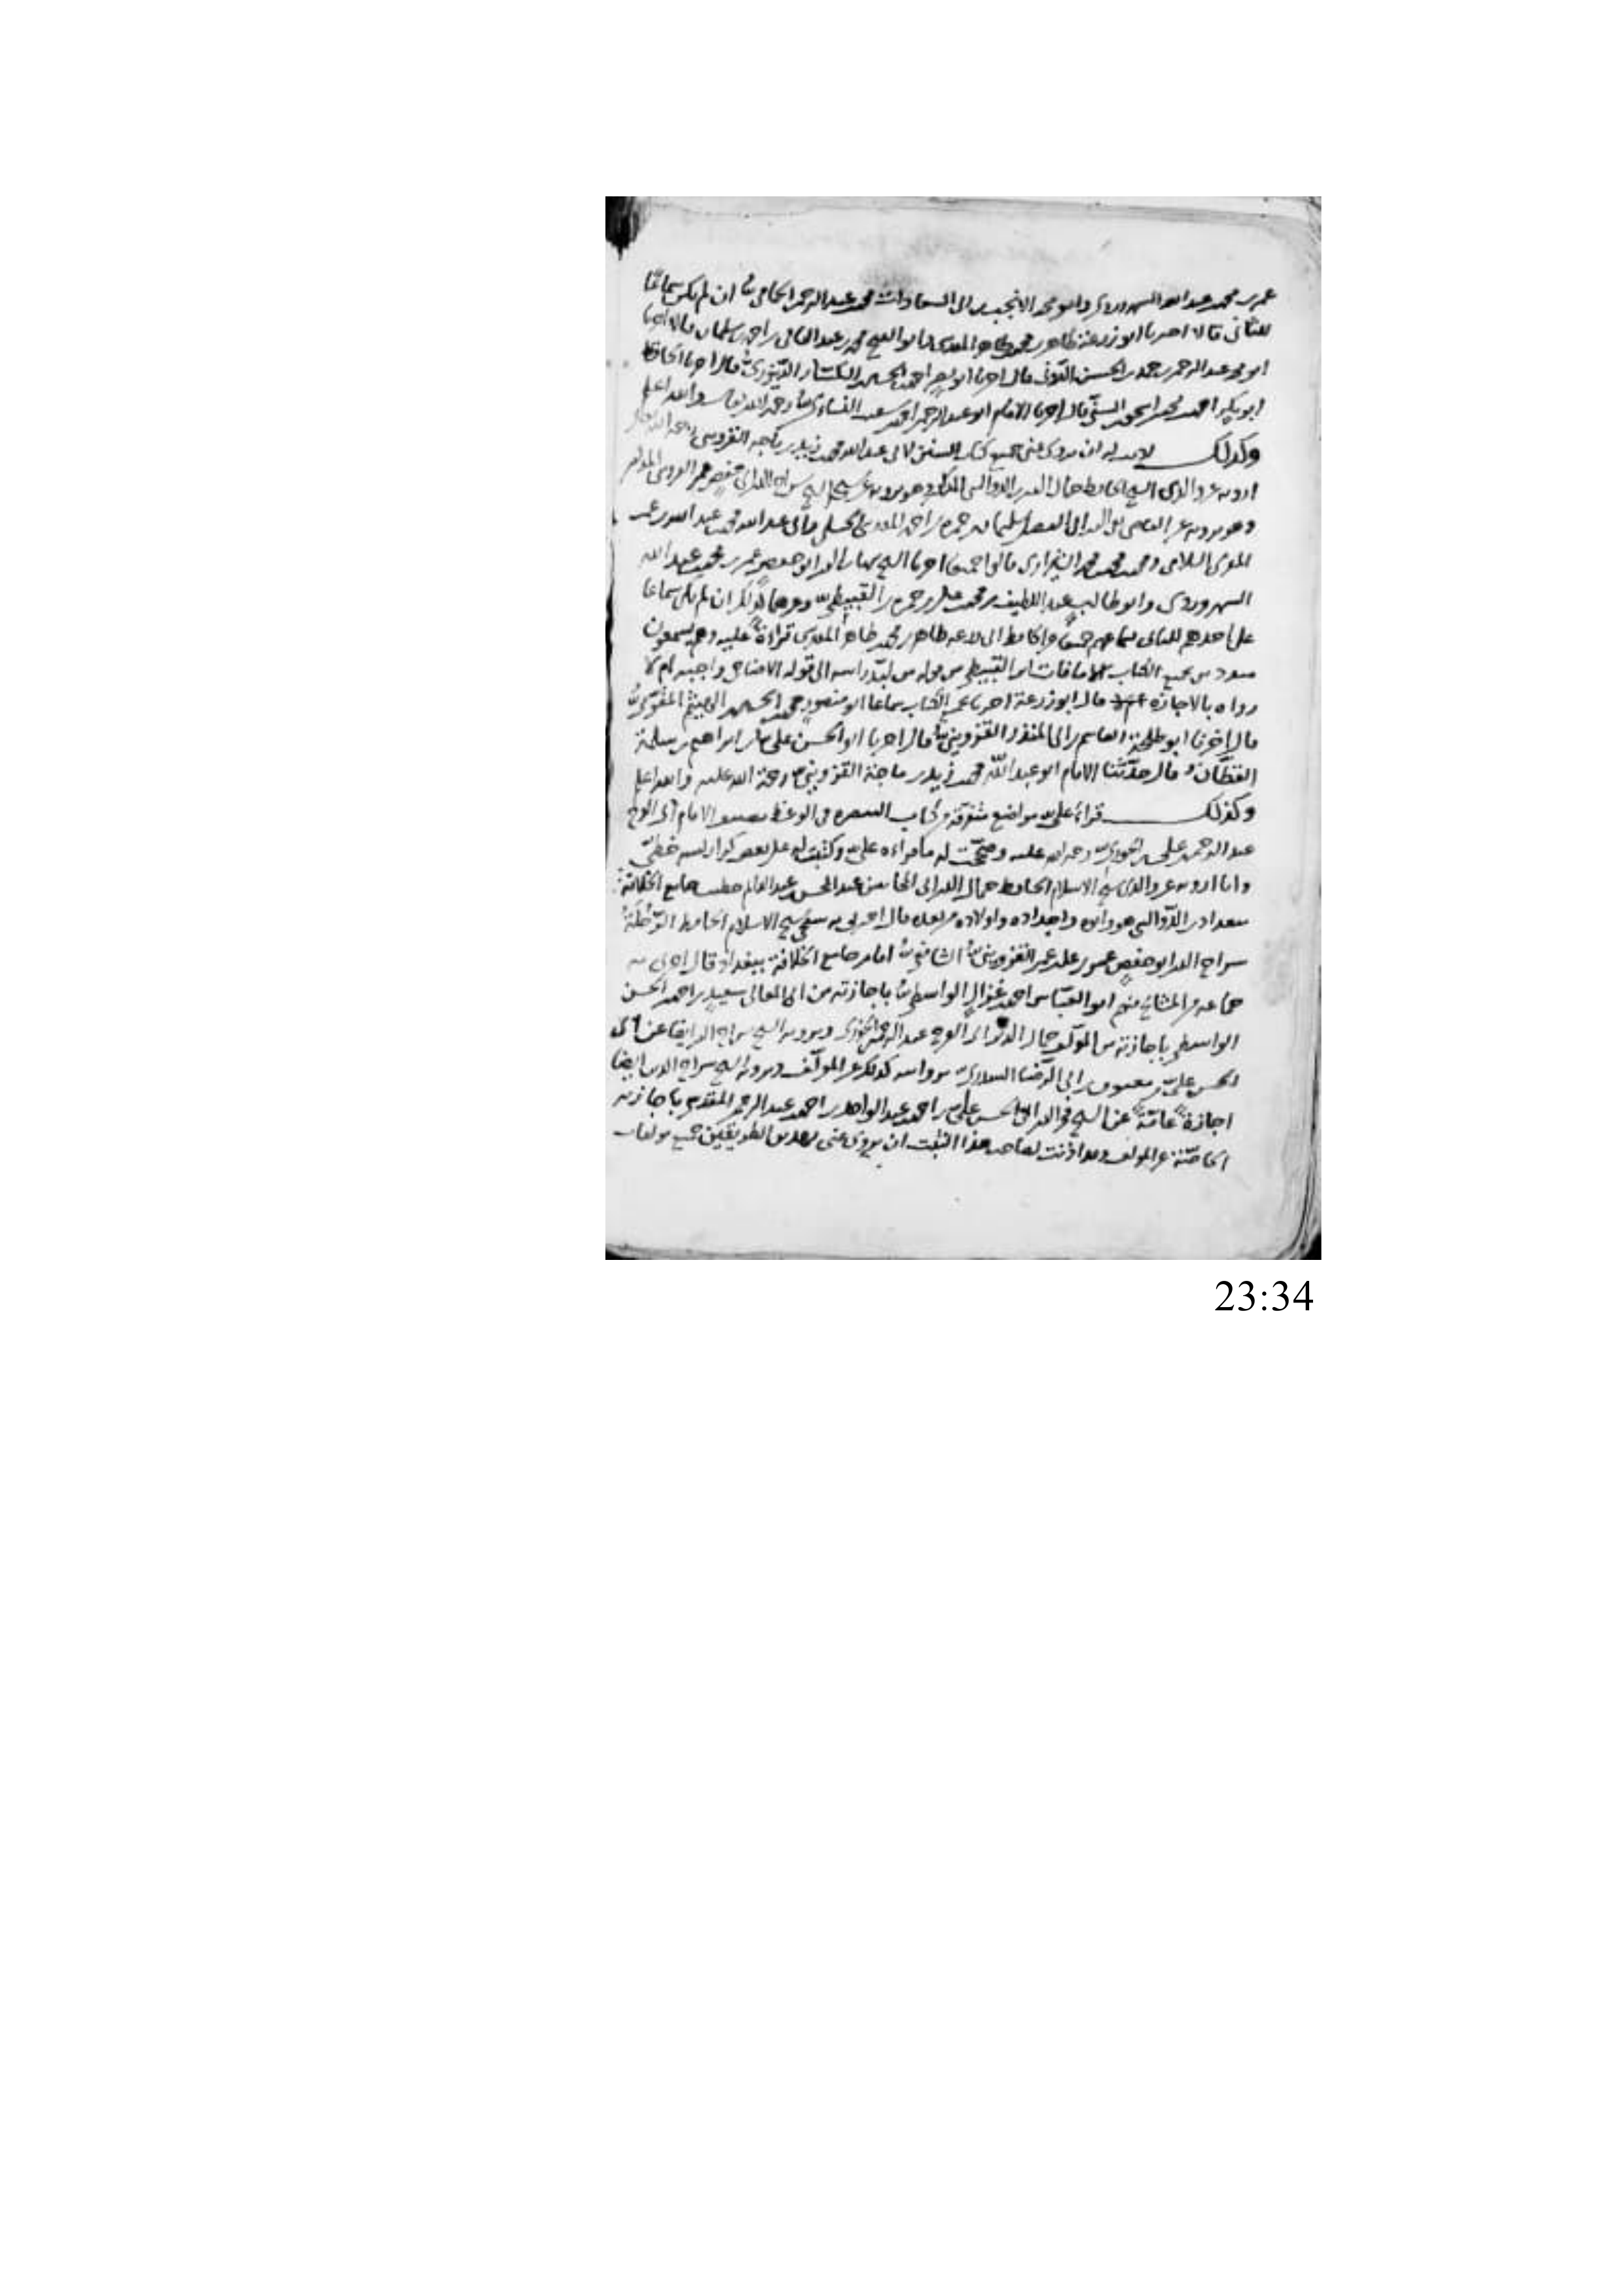 عمر بن محمد بن عبد الله السهروردي وابو محمد الانجب بن ابي السعادات محمد بن عبد الرحمن الحمامي ان لم يكن سماعا
للثاني قالا اخبرنا ابو زرعة طاهر بن محمد بن طاهر المقدسي وابو الفتح محمد بن عبد الباقي بن احمد بن سلمان قالا اخبرنا
ابو محمد عبد الرحمن بن حمد بن الحسن الدوني قال اخبرنا ابو نصر احمد بن الحسين الكسار الدينوري قال اخبرنا الحافظ
ابو بكر احمد بن محمد بن اسحق السني قال اخبرنا الامام ابو عبد الرحمن احمد بن شعيب النسائي رحمه الله تعالى والله اعلم
وكذلك له ان يروي عني جميع كتاب السنن لابي عبد الله محمد بن يزيد بن ماجه القزويني رحمه الله
ارويه عن والدي الشيخ الحافظ جمال الدين الدواليبي وهو يرويه عن الشيخ سراج الدين ابي حفص عمر القزويني
وهو يرويه عن القاضي ابي الفضل سليمان بن حمزة بن احمد المقدسي الحنبلي وابي عبد الله محمد بن عبد الله بن عمر
المقرئ السلامي ومحمد بن محمد بن محمد الشيرازي قالوا جميعا اخبرنا الشيخ شهاب الدين ابو حفص عمر بن محمد بن عبد الله
السهروردي وابو طالب عبد اللطيف بن محمد بن علي بن حمزة بن القبيطي وغيرهما كذلك ان لم يكن سماعا
طاهر بن محمد بن طاهر المقدسي قراءة عليه وهم يسمعون
جميع الكتاب ما فات ابن القبيطي من قوله الى قوله
رواه بالاجازة قال ابو زرعة اخبرنا بجميع الكتاب سماعا ابو منصور محمد بن الحسين بن الهيثم المقومي
قال اخبرنا ابو طلحة القاسم بن ابي المنذر القزويني قال اخبرنا ابو الحسن علي بن ابراهيم بن سلمة
القطان قال حدثنا الامام ابو عبد الله محمد بن يزيد بن ماجة القزويني رحمة الله عليه والله اعلم
وكذلك قرا علي مواضع متفرقة من كتاب التبصرة في الوعظ تصنيف الامام ابي الفرج
عبد الرحمن بن علي بن الجوزي رحمه الله عليه وصححت له ما قراءه علي وكتبت له على بعض كراريسه خطي
وانا ارويه عن والدي شيخ الاسلام الحافظ جمال الدين ابي المحاسن عبد المحسن بن عبد الدائم خطيب جامع الخلافة
ببغداد بن الدواليبي هو وابوه واجداده واولاده من بعده قال اخبرني به شيخ الاسلام الحافظ
سراج الدين ابو حفص عمر بن علي بن عمر القزويني الشافعي امام جامع الخلافة ببغداد قال اخبرني به
جماعة من المشائخ منهم ابو العباس احمد بن غزال الواسطي باجازته من ابي المعالي سعيد بن احمد بن الحسن
الواسطي باجازته من المؤلف جمال الدين ابي الفرج عبد الرحمن بن الجوزي ويرويه الشيخ سراج الدين ايضا عن ابي
الحسن علي بن ابي الرضا بروايته كذلك عن المؤلف ويرويه الشيخ سراج الدين ايضا
اجازة عامة عن الشيخ فخر الدين ابي الحسن علي بن احمد بن عبد الواحد بن احمد بن عبد الرحمن المقدسي باجازته
الخاصة عن المؤلف وقد اذنت لصاحب هذا الثبت ان يروي عني بهذين الطريقين جميع مؤلفات
23:34